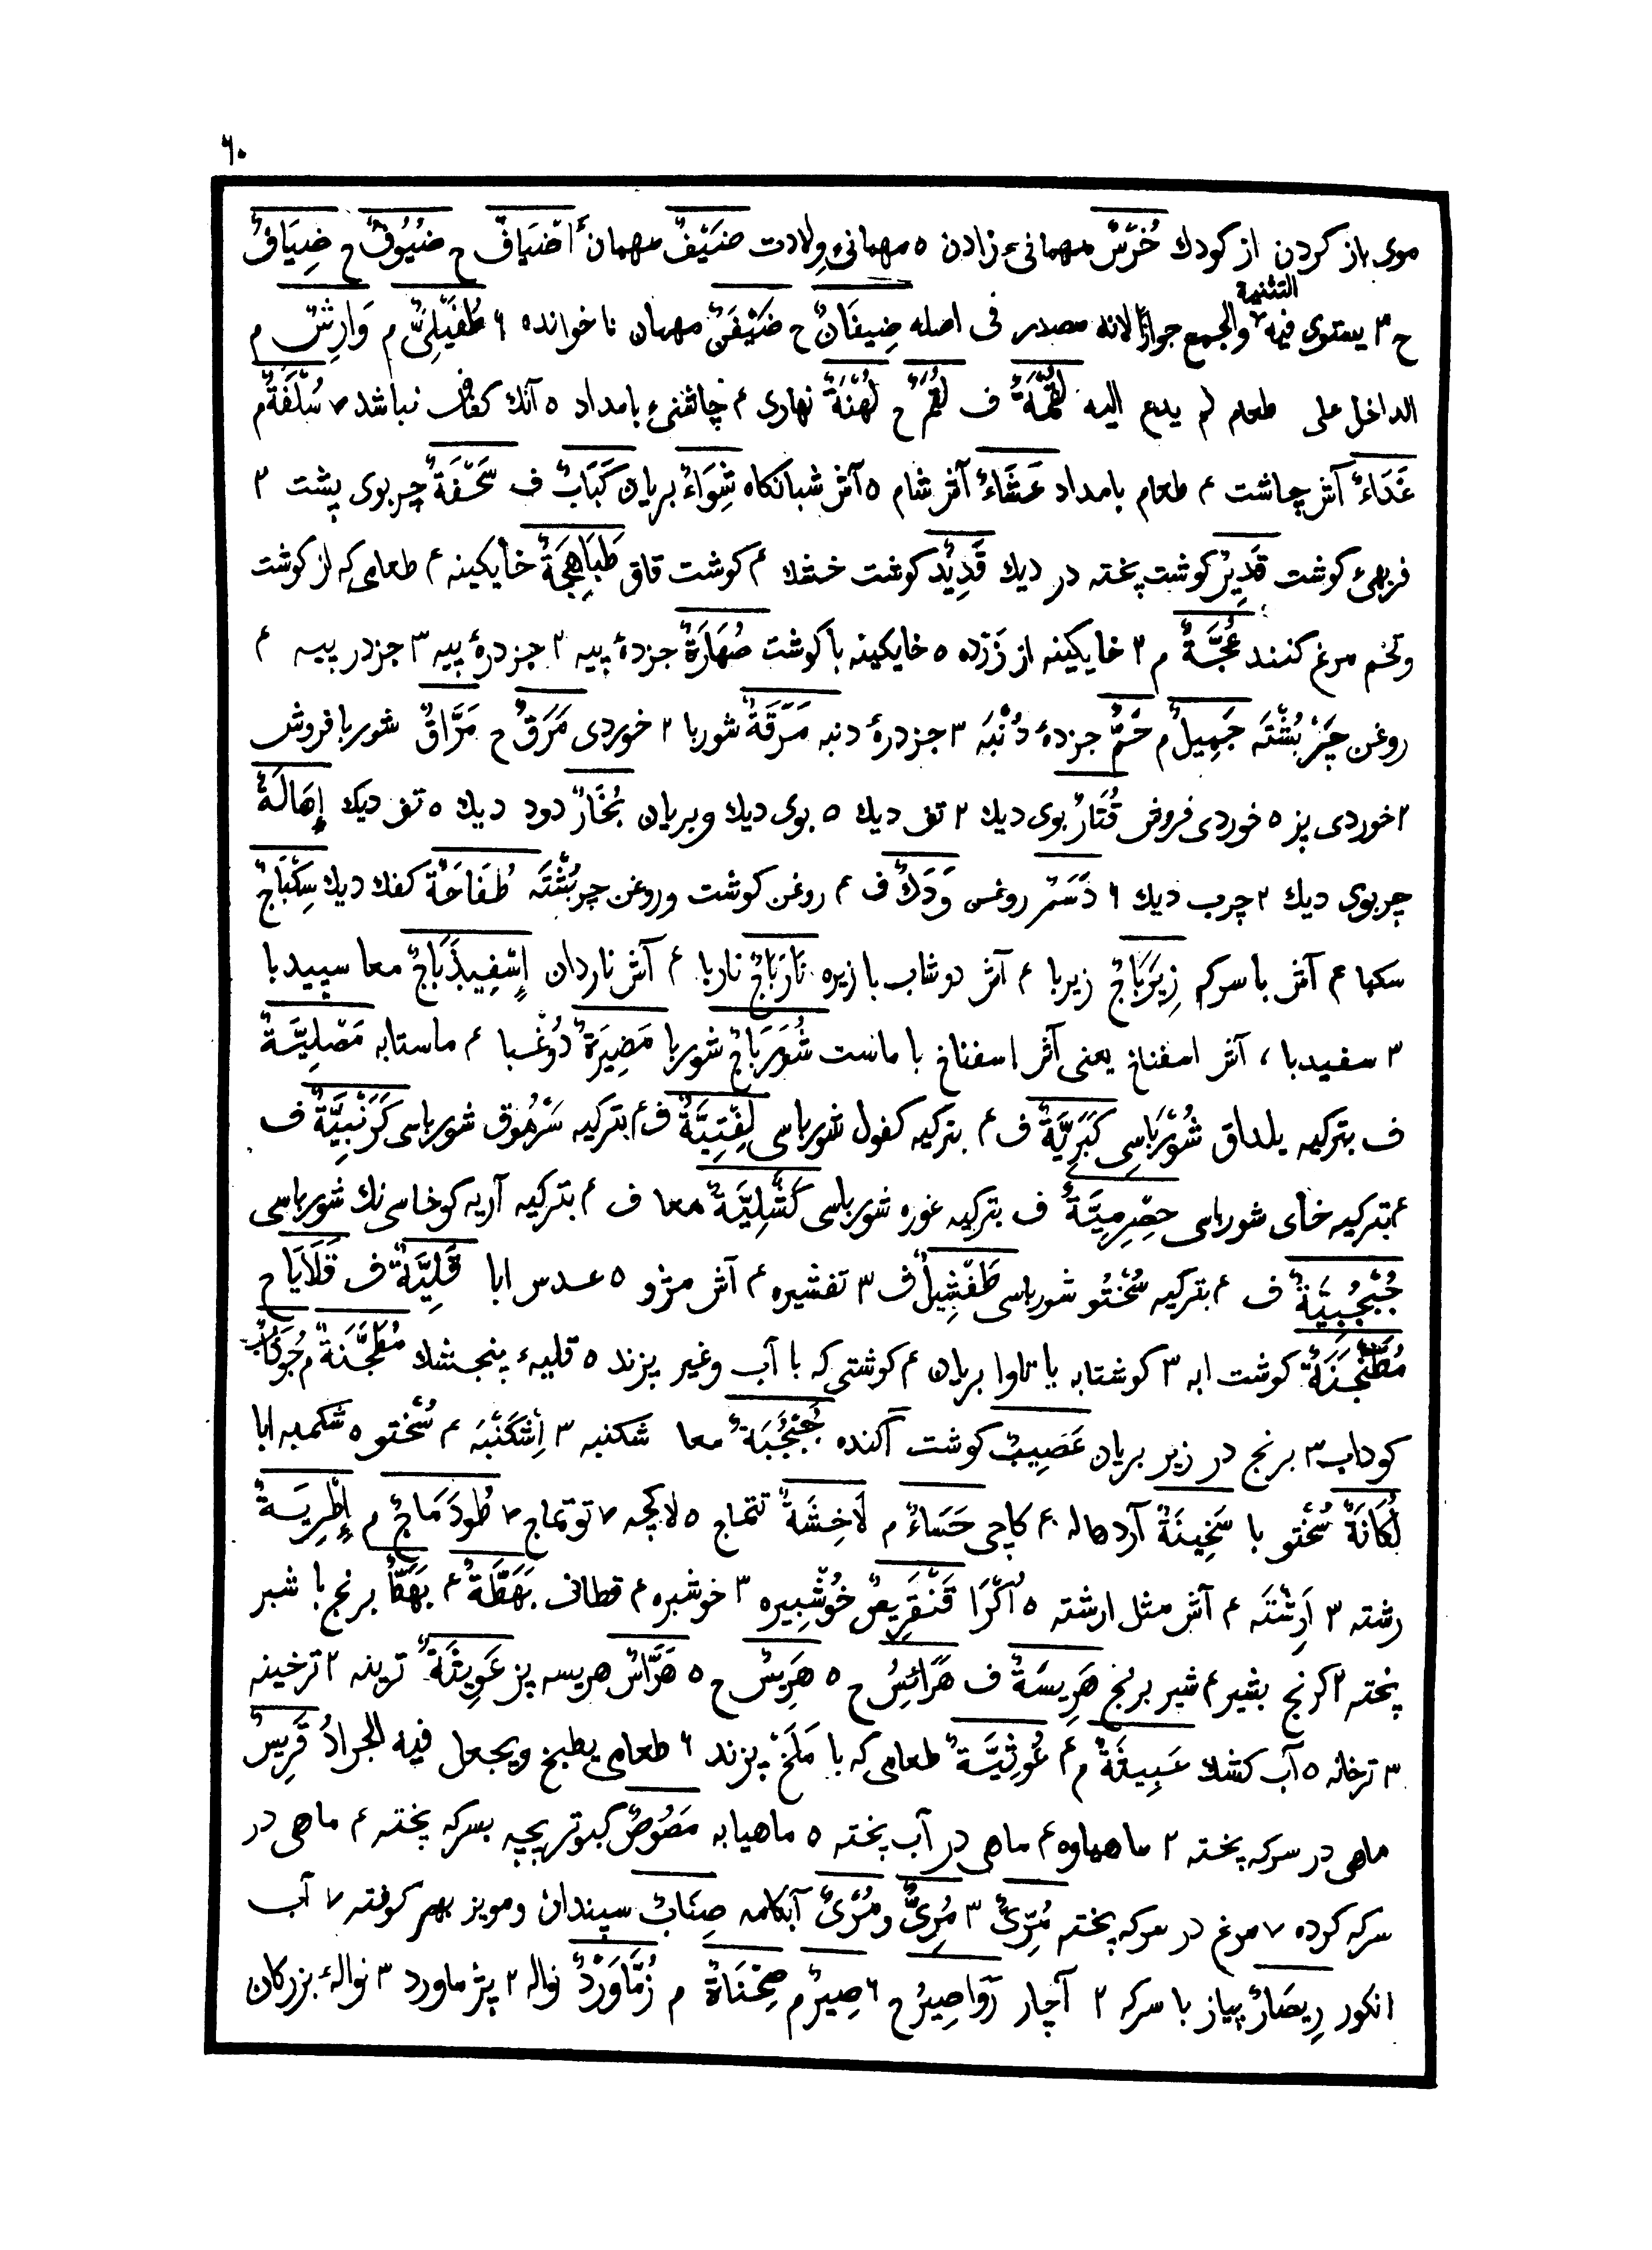 ٦٠
موی باز کردن از کودك خُرْسٌ مهمانیٔ زادن ٥ مهمانیٔ ولادت ضَيْفٌ مهمان ٤ اَضْيَافٌ ح ضُيُوفٌ ح ضِيَافٌ
التثنية
ح ٣ يستوی فيه والجمع جوازًا لانه مصدر فی اصله ضِيفَانٌ ح ضَيْفَنٌ مهمان ناخوانده ٦ طُفَيْلِیٌّ م وَارِشٌ م
الداخل على طعام لم يدع اليه لُقْمَةٌ ف لُقَمٌ ح لُهْنَةٌ نهاری ٤ چاشنیٔ بامداد ٥ آنك كفاف نباشد ٧ سُلْفَةٌ م
غَدَاءٌ آش چاشت ٤ طعام بامداد عَشَاءٌ آش شام ٥ آش شبانكاه شِوَاءٌ بریان كَبَابٌ ف سَحْفَةٌ چربوی پشت ٢
فربهیٔ كوشت قَدِيرٌ كوشت پخته در دیك قَدِيدٌ كوشت خشك ٤ كوشت قاق طَبَاهِجَةٌ خایكینه ٤ طعامی كه از كوشت
وتخم مرغ كنند عُجَّةٌ م ٢ خایكینه از زَرْده ٥ خایكینه با كوشت صُهَارَةٌ جزدهٔ پیه ٢ جزدرهٔ پیه ٣ جزدر پیه ٤
روغن چَرْبُشْتَه جَمِيلٌ م حَمٌّ جزدهٔ دُنْبَه ٣ جزدرهٔ دنبه مَرَقَةٌ شوربا ٢ خوردی مَرَقٌ ح مَرَّاقٌ شوربا فروش
٢ خوردی پز ٥ خوردی فروش قُتَارٌ بوی دیك ٢ تف دیك ٥ بوی دیك وبریان بُخَارٌ دود دیك ٥ تف دیك إِهَالَةٌ
چربوی دیك ٢ چرب دیك ٦ دَسَمٌ روغن وَدَكٌ ف ٤ روغن كوشت وروغن چربُشْتَه طُفَاحَةٌ كفك دیك سِكْبَاجٌ
سكبا ٤ آش با سركه زِيَرْبَاجٌ زیربا ٤ آش دوشاب با زیره نَارْبَاجٌ ناربا ٤ آش ناردان إِسْفِيذَبَاجٌ معا سپیدبا
٣ سفیدبا ، آش اسفناخ یعنی آش اسفناخ با ماست شُورَبَاجٌ شوربا مَضِيرَةٌ دُوغْبا ٤ ماستابه مَصْلِيَّةٌ
ف بتركیه یلداق شُوْرَبَاسِی كَبَرِيَّةٌ ف ٤ بتركیه كفول شورباسی لِفْتِيَّةٌ ف ٤ بتركیه سَرْمُوق شورباسی كَرَنْبِيَّةٌ ف
٤ بتركیه خای شورباسی حِصْرِمِيَّةٌ ف بتركیه غوره شورباسی كَشْلِيَّةٌ معا ف ٤ بتركیه آریه كوخاسی نك شورباسی
جُبْجُبِيَّةٌ ف ٤ بتركیه سُخْتُو شورباسی طَفْشِيلٌ ف ٣ تفشیره ٤ آش مژو ٥ عدس ابا قَلِيَّةٌ ف قَلَايَا ح
كوشت ابه ٣ كوشتابه یا تاوا بریان ٤ كوشتی كه با آب وغیر پزند ٥ قلیهٔ پنجشك مُطَجَّنَةٌ م جُوذَابٌ
كوداب ٣ برنج در زیر بریان عَصِيبٌ كوشت آكنده جُبْجُبَةٌ معا شكنبه ٣ اِشْكَنْبَه ٤ سُخْتو ٥ شكمبه ابا
لُكَانَةٌ سُخْتو با سَخِينَةٌ آردهاله ٤ كاچی حَسَاءٌ م لَاخِشَةٌ تتماج ٥ لاكچه ٧ توتماج ٧ طُودَمَاجٌ م إِطْرِيَةٌ
رشته ٣ اَرِشْتَه ٤ آش مثل ارشته ٥ اُكْرَا قَنْقَرِيصٌ خُوْشْبیره ٣ خوشبره ٤ قطائف بَهَطَّةٌ ٤ بَهَطٌّا برنج با شیر
پخته ٢ كرنج بشیر ٤ شیر برنج هَرِيسَةٌ ف هَرَائِسُ ح ٥ هَرِيسٌ ح ٥ هَرَّاسٌ هریسه پز عَوِيثَةٌ ترینه ٢ ترخینه
٣ ترخانه ٥ آب كشك عَبِيثَةٌ م ٤ غُوثِيَّةٌ طعامی كه با مَلَخْ پزند ٦ طعامی یطبخ ویجعل فیه الجراد قَرِيسٌ
ماهی در سركه پخته ٢ ماهیاوه ٤ ماهی در آب پخته ٥ ماهیابه مَصُوصٌ كبوتر بچه بسركه پخته ٤ ماهی در
سركه كرده ٧ مرغ در سركه پخته مُرِّیٌّ ٣ مُرِیٌّ ومُرْیٌ آبكامه صِنَابٌ سپندان ومویز بهم كوفته ٧ آب
انكور رِيصَارٌ پیاز با سركه ٢ آچار رَوَاصِيرُ ح ٦ صِيرٌ م صِحْنَاةٌ م زُمَّاوَرْدٌ نواله ٢ پژماورد ٣ نوالهٔ بزركان